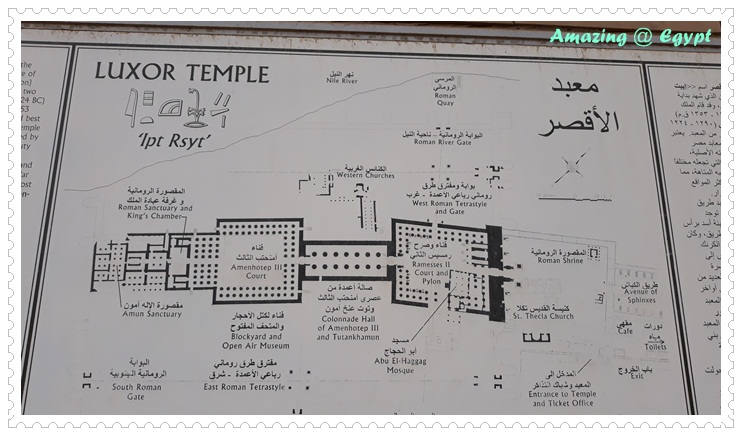 Amazing @ Egypt
LUXOR TEMPLE
'Ipt Rsyt'
معبد
الأقصر
نهر النيل
Nile River
المرسى
الروماني
Roman
Quay
البوابة الرومانية - ناحية النيل
Roman River Gate
الكنائس الغربية
Western Churches
بوابة ومفترق طرق
روماني رباعي الأعمدة - غرب
West Roman Tetrastyle
and Gate
المقصورة الرومانية
و غرفة عبادة الملك
Roman Sanctuary and
King's Chamber
فناء
أمنحتب الثالث
Amenhotep III
Court
فناء وصرح
رمسيس الثاني
Ramesses II
Court and
Pylon
المقصورة الرومانية
Roman Shrine
طريق الكباش
Avenue of
Sphinxes
مقصورة الإله آمون
Amun Sanctuary
فناء لكتل الأحجار
والمتحف المفتوح
Blockyard and
Open Air Museum
صالة أعمدة من
عصرى أمنحتب الثالث
وتوت عنخ آمون
Colonnade Hall
of Amenhotep III
and Tutankhamun
مسجد
أبو الحجاج
Abu El-Haggag
Mosque
كنيسة القديس تكلا
St. Thecla Church
مقهي
Cafe
دورات
مياه
Toilets
البوابة
الرومانية الجنوبية
South Roman
Gate
مفترق طرق روماني
رباعي الأعمدة - شرق
East Roman Tetrastyle
المدخل إلى
المعبد وشباك التذاكر
Entrance to Temple
and Ticket Office
باب الخروج
Exit